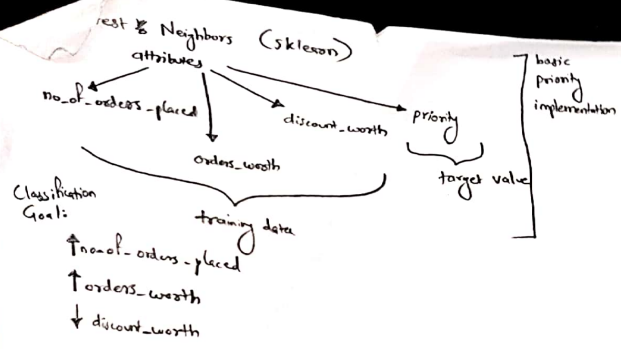 est & Neighbors (sklearn)
attributes
no_of_orders_placed
orders_worth
discount_worth
priority
target value
basic
priority
implementation
training data
Classification
Goal:
↑no_of_orders_placed
↑orders_worth
↓ discount_worth